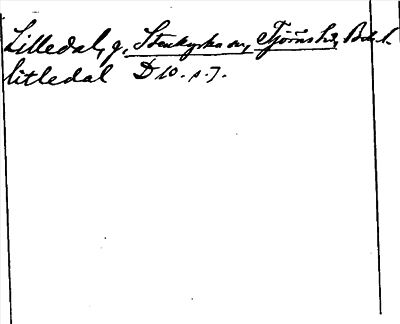 Lilledal, g. Stenkyrka sn, Tjörns hd, Boh. l.
litledal D 10. s. 7.